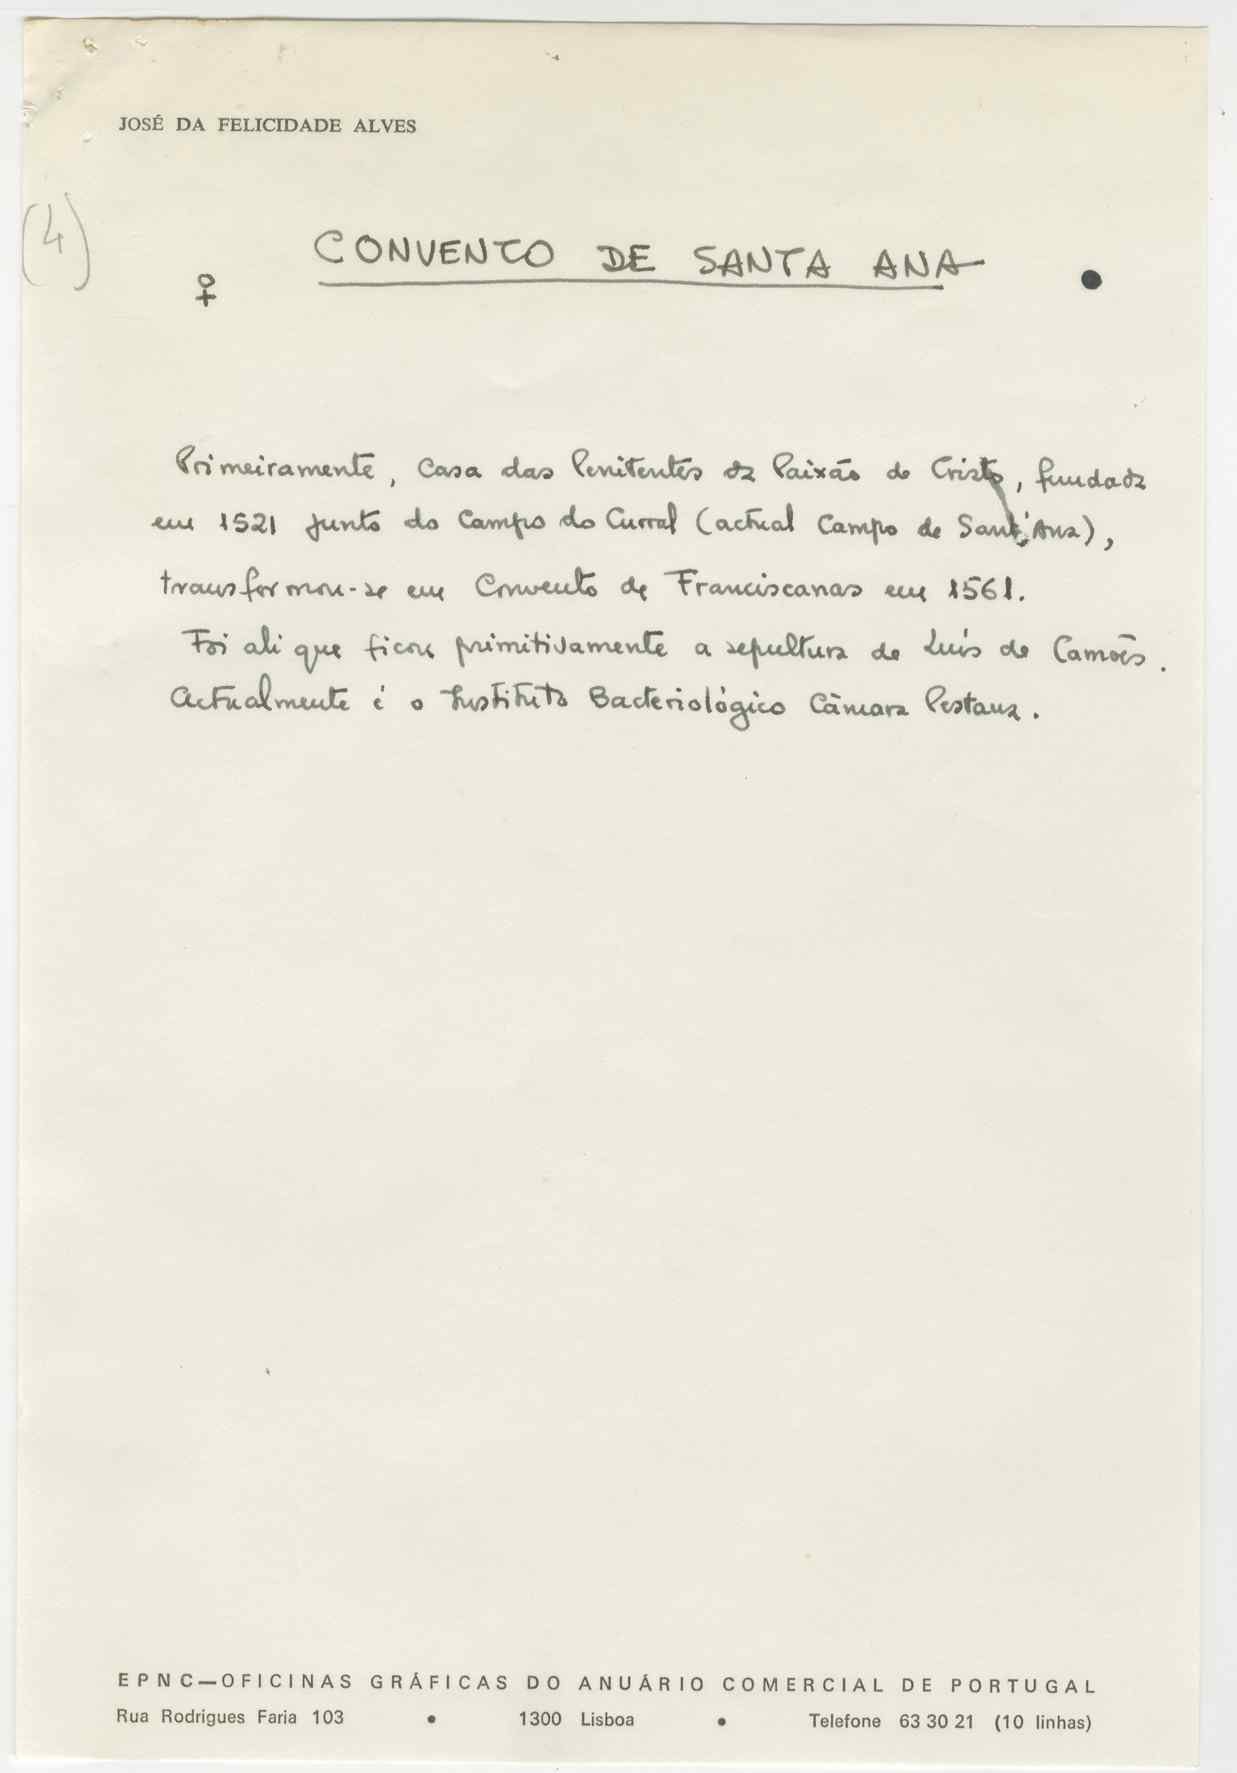 JOSÉ DA FELICIDADE ALVES
(4)
CONVENTO DE SANTA ANA
♀ ●
Primeiramente, Casa das Penitentes da Paixão de Cristo, fundada
em 1521 junto do Campo do Curral (actual Campo de Sant'Ana),
transformou-se em Convento de Franciscanas em 1561.
Foi ali que ficou primitivamente a sepultura de Luís de Camões.
Actualmente é o Instituto Bacteriológico Câmara Pestana.
EPNC—OFICINAS GRÁFICAS DO ANUÁRIO COMERCIAL DE PORTUGAL
Rua Rodrigues Faria 103 • 1300 Lisboa • Telefone 63 30 21 (10 linhas)